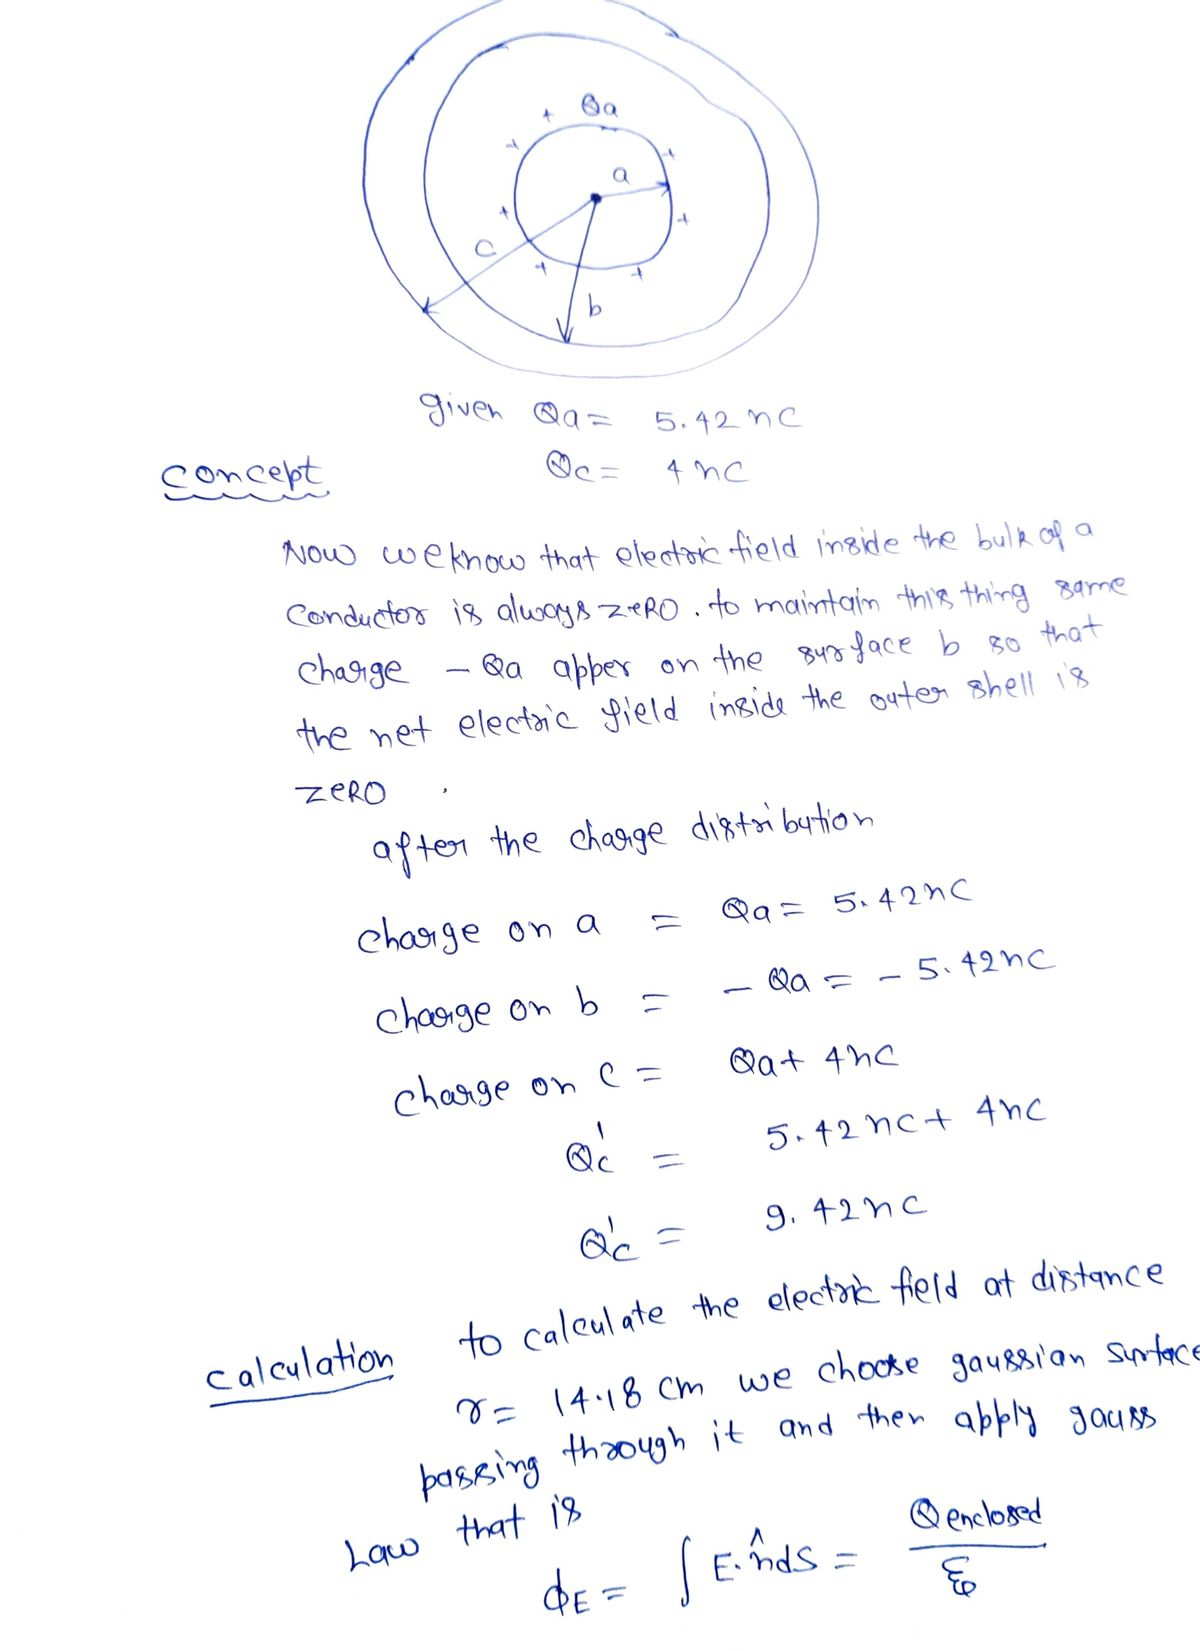 Qa
a
c
b
given Qa = 5.42 nC
Qc = 4 nC
concept
Now we know that electric field inside the bulk of a
conductor is always zeRO . to maintain this thing same
charge - Qa apper on the surface b so that
the net electric field inside the outer shell is
zeRO .
after the charge distribution
charge on a = Qa = 5.42nC
charge on b = - Qa = - 5.42nC
charge on c = Qa + 4nC
Qc' = 5.42 nC + 4nC
Qc' = 9.42nC
calculation to calculate the electric field at distance
r = 14.18 cm we choose gaussian surface
passing through it and then apply gauss
Law that is
ϕE = ∫ E.n̂ds = Qenclosed / ε0